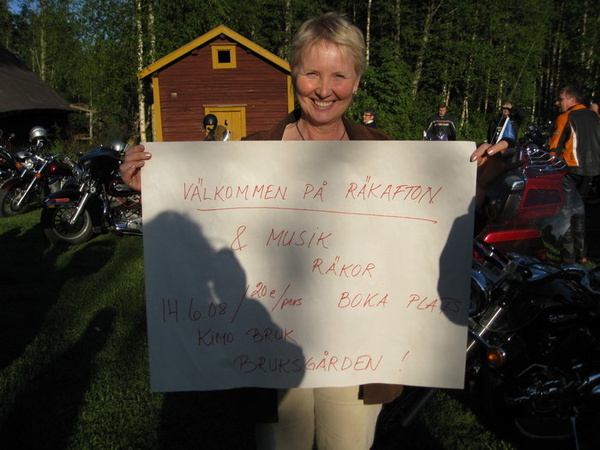 VÄLKOMMEN PÅ RÄKAFTON
& MUSIK
RÄKOR
14.6 08/20e/pers BOKA PLATS
KIMO BRUK
BRUKSGÅRDEN !